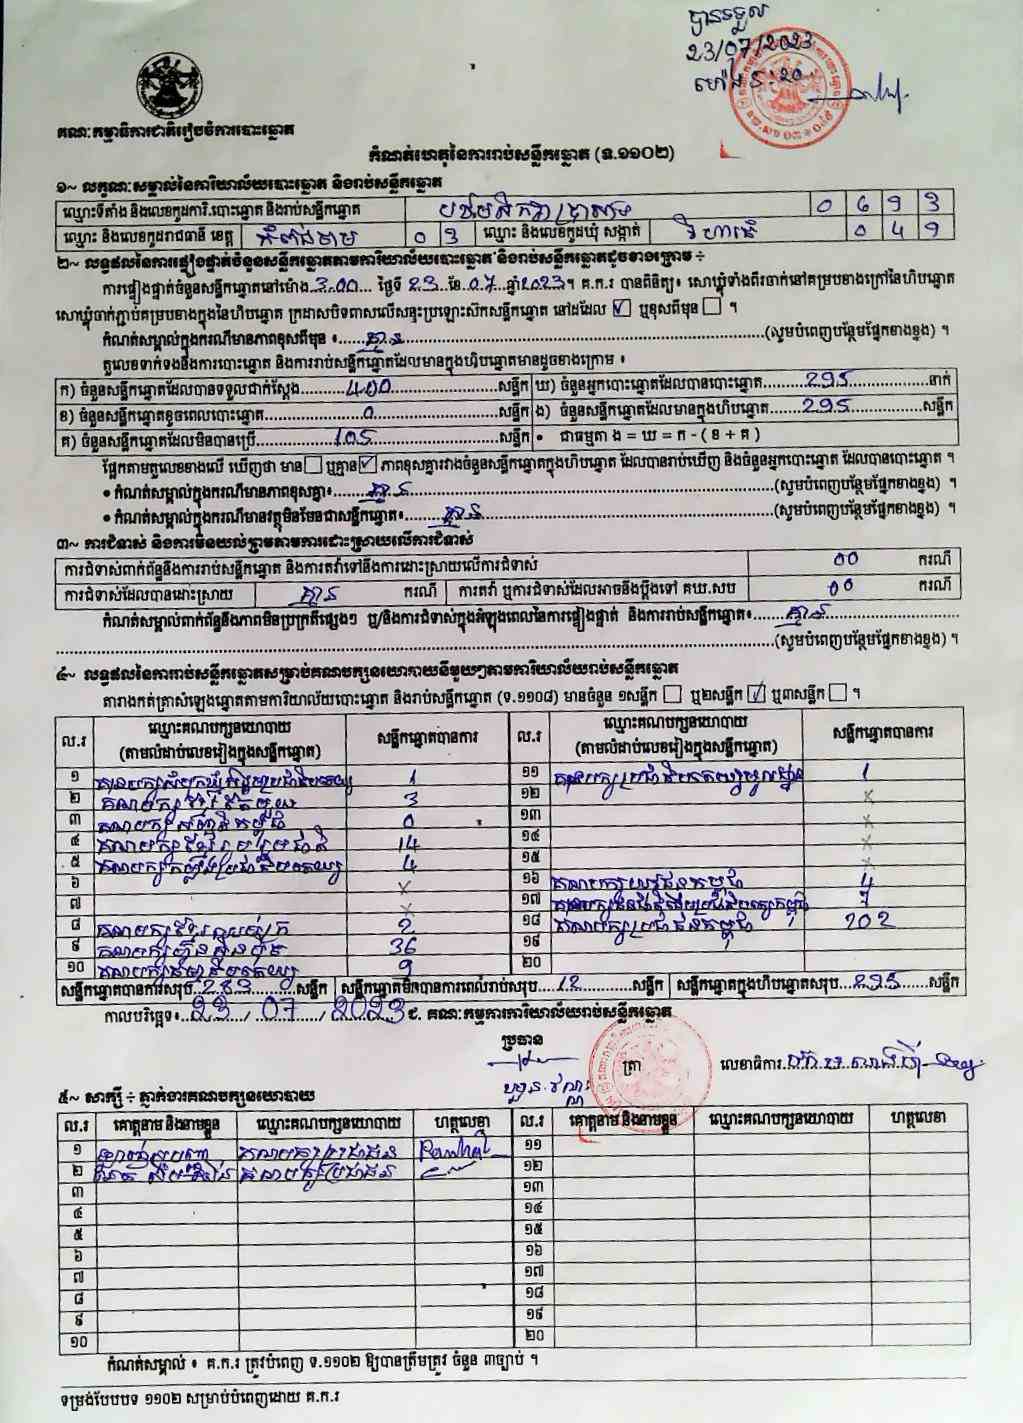 បានទទួល
23/07/2023
ម៉ោង 5:20
គណៈកម្មាធិការជាតិរៀបចំការបោះឆ្នោត
កំណត់ហេតុនៃការរាប់សន្លឹកឆ្នោត (ទ.១១០២)
១~ លក្ខណៈសម្គាល់នៃការិយាល័យបោះឆ្នោត និងរាប់សន្លឹកឆ្នោត
ឈ្មោះទីតាំង និងលេខកូដការិ.បោះឆ្នោត និងរាប់សន្លឹកឆ្នោត 0 6 9 3
ឈ្មោះ និងលេខកូដរាជធានី ខេត្ត កំពង់ចាម 0 3 ឈ្មោះ និងលេខកូដឃុំ សង្កាត់ វិហារធំ 0 4 9
២~ លទ្ធផលនៃការផ្ទៀងផ្ទាត់ចំនួនសន្លឹកឆ្នោតតាមការិយាល័យបោះឆ្នោត និងរាប់សន្លឹកឆ្នោតដូចខាងក្រោម ÷
ការផ្ទៀងផ្ទាត់ចំនួនសន្លឹកឆ្នោតនៅម៉ោង 3.00 ថ្ងៃទី 23 ខែ 07 ឆ្នាំ 2023។ គ.ក.រ បានពិនិត្យ៖ សោឃ្មុំទាំងពីរចាក់នៅគម្របខាងក្រៅនៃហិបឆ្នោត
សោឃ្មុំចាក់ភ្ជាប់គម្របខាងក្នុងនៃហិបឆ្នោត ក្រដាសបិទពាសលើសន្ទះប្រឡោះស៊កសន្លឹកឆ្នោត នៅដដែល ☑ ឬខុសពីមុន ☐ ។
កំណត់សម្គាល់ក្នុងករណីមានភាពខុសពីមុន ៖ គ្មាន (សូមបំពេញបន្ថែមផ្នែកខាងខ្នង) ។
តួលេខទាក់ទងនឹងការបោះឆ្នោត និងការរាប់សន្លឹកឆ្នោតដែលមានក្នុងហិបឆ្នោតមានដូចខាងក្រោម ៖
ក) ចំនួនសន្លឹកឆ្នោតដែលបានទទួលជាក់ស្តែង 400 សន្លឹក ឃ) ចំនួនអ្នកបោះឆ្នោតដែលបានបោះឆ្នោត 295 នាក់
ខ) ចំនួនសន្លឹកឆ្នោតខូចពេលបោះឆ្នោត 0 សន្លឹក ង) ចំនួនសន្លឹកឆ្នោតដែលមានក្នុងហិបឆ្នោត 295 សន្លឹក
គ) ចំនួនសន្លឹកឆ្នោតដែលមិនបានប្រើ 105 សន្លឹក • ជាធម្មតា ង = ឃ = ក - ( ខ + គ )
ផ្អែកតាមតួលេខខាងលើ ឃើញថា មាន ☐ ឬគ្មាន ☑ ភាពខុសគ្នារវាងចំនួនសន្លឹកឆ្នោតក្នុងហិបឆ្នោត ដែលបានរាប់ឃើញ និងចំនួនអ្នកបោះឆ្នោត ដែលបានបោះឆ្នោត ។
• កំណត់សម្គាល់ក្នុងករណីមានភាពខុសគ្នា៖ គ្មាន (សូមបំពេញបន្ថែមផ្នែកខាងខ្នង) ។
• កំណត់សម្គាល់ក្នុងករណីមានវត្ថុមិនមែនជាសន្លឹកឆ្នោត៖ គ្មាន (សូមបំពេញបន្ថែមផ្នែកខាងខ្នង) ។
៣~ ការជំទាស់ និងការមិនយល់ព្រមតាមការដោះស្រាយលើការជំទាស់
ការជំទាស់ពាក់ព័ន្ធនឹងការរាប់សន្លឹកឆ្នោត និងការតវ៉ាទៅនឹងការដោះស្រាយលើការជំទាស់ 00 ករណី
ការជំទាស់ដែលបានដោះស្រាយ គ្មាន ករណី ការតវ៉ា ឬការជំទាស់ដែលអាចនឹងប្តឹងទៅ គឃ.សប 00 ករណី
កំណត់សម្គាល់ពាក់ព័ន្ធនឹងភាពមិនប្រក្រតីផ្សេងៗ ឬ/និងការជំទាស់ក្នុងអំឡុងពេលនៃការផ្ទៀងផ្ទាត់ និងការរាប់សន្លឹកឆ្នោត៖ គ្មាន
(សូមបំពេញបន្ថែមផ្នែកខាងខ្នង) ។
៤~ លទ្ធផលនៃការរាប់សន្លឹកឆ្នោតសម្រាប់គណបក្សនយោបាយនីមួយៗតាមការិយាល័យរាប់សន្លឹកឆ្នោត
តារាងកត់ត្រាសំឡេងឆ្នោតតាមការិយាល័យបោះឆ្នោត និងរាប់សន្លឹកឆ្នោត (ទ.១១០៨) មានចំនួន ១សន្លឹក ☐ ឬ២សន្លឹក ☑ ឬ៣សន្លឹក ☐ ។
ល.រ ឈ្មោះគណបក្សនយោបាយ (តាមលំដាប់លេខរៀងក្នុងសន្លឹកឆ្នោត) សន្លឹកឆ្នោតបានការ ល.រ ឈ្មោះគណបក្សនយោបាយ (តាមលំដាប់លេខរៀងក្នុងសន្លឹកឆ្នោត) សន្លឹកឆ្នោតបានការ
១ 1 ១១ 1
២ គណបក្សខ្មែរតែមួយ 3 ១២ x
៣ គណបក្ស 0 ១៣ x
៤ គណបក្សខ្មែររួបរួមជាតិ 14 ១៤ x
៥ គណបក្ស 4 ១៥ x
៦ x ១៦ គណបក្សយុវជនកម្ពុជា 4
៧ x ១៧ 7
៨ គណបក្សខ្មែរ 2 ១៨ គណបក្សប្រជាជនកម្ពុជា 202
៩ គណបក្សហ៊្វុនស៊ិនប៉ិច 36 ១៩
១០ គណបក្ស 9 ២០
សន្លឹកឆ្នោតបានការសរុប 283 សន្លឹក សន្លឹកឆ្នោតមិនបានការពេលរាប់សរុប 12 សន្លឹក សន្លឹកឆ្នោតក្នុងហិបឆ្នោតសរុប 295 សន្លឹក
កាលបរិច្ឆេទ៖ 23 / 07 / 2023 ជ. គណៈកម្មការការិយាល័យរាប់សន្លឹកឆ្នោត
ប្រធាន
ត្រា លេខាធិការ
៥~ សាក្សី ÷ ភ្នាក់ងារគណបក្សនយោបាយ
ល.រ គោត្តនាម និងនាមខ្លួន ឈ្មោះគណបក្សនយោបាយ ហត្ថលេខា ល.រ គោត្តនាម និងនាមខ្លួន ឈ្មោះគណបក្សនយោបាយ ហត្ថលេខា
១ គណបក្សប្រជាជន ១១
២ គណបក្សប្រជាជន ១២
៣ ១៣
៤ ១៤
៥ ១៥
៦ ១៦
៧ ១៧
៨ ១៨
៩ ១៩
១០ ២០
កំណត់សម្គាល់ ៖ គ.ក.រ ត្រូវបំពេញ ទ.១១០២ ឱ្យបានត្រឹមត្រូវ ចំនួន ៣ច្បាប់ ។
ទម្រង់បែបបទ ១១០២ សម្រាប់បំពេញដោយ គ.ក.រ